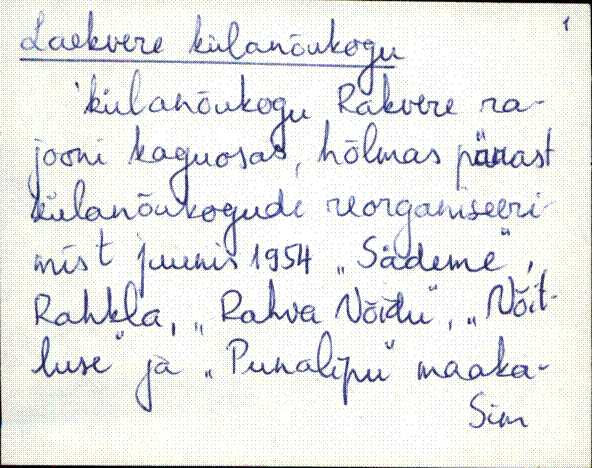 1
Laekvere külanõukogu
külanõukogu Rakvere ra-
jooni kaguosas, hõlmas pärast
külanõukogude reorganiseeri-
mist juunis 1954 „Sädeme",
Rahkla, „Rahva Võidu", „Võit-
luse" ja „Punalipu" maaka-
Sim